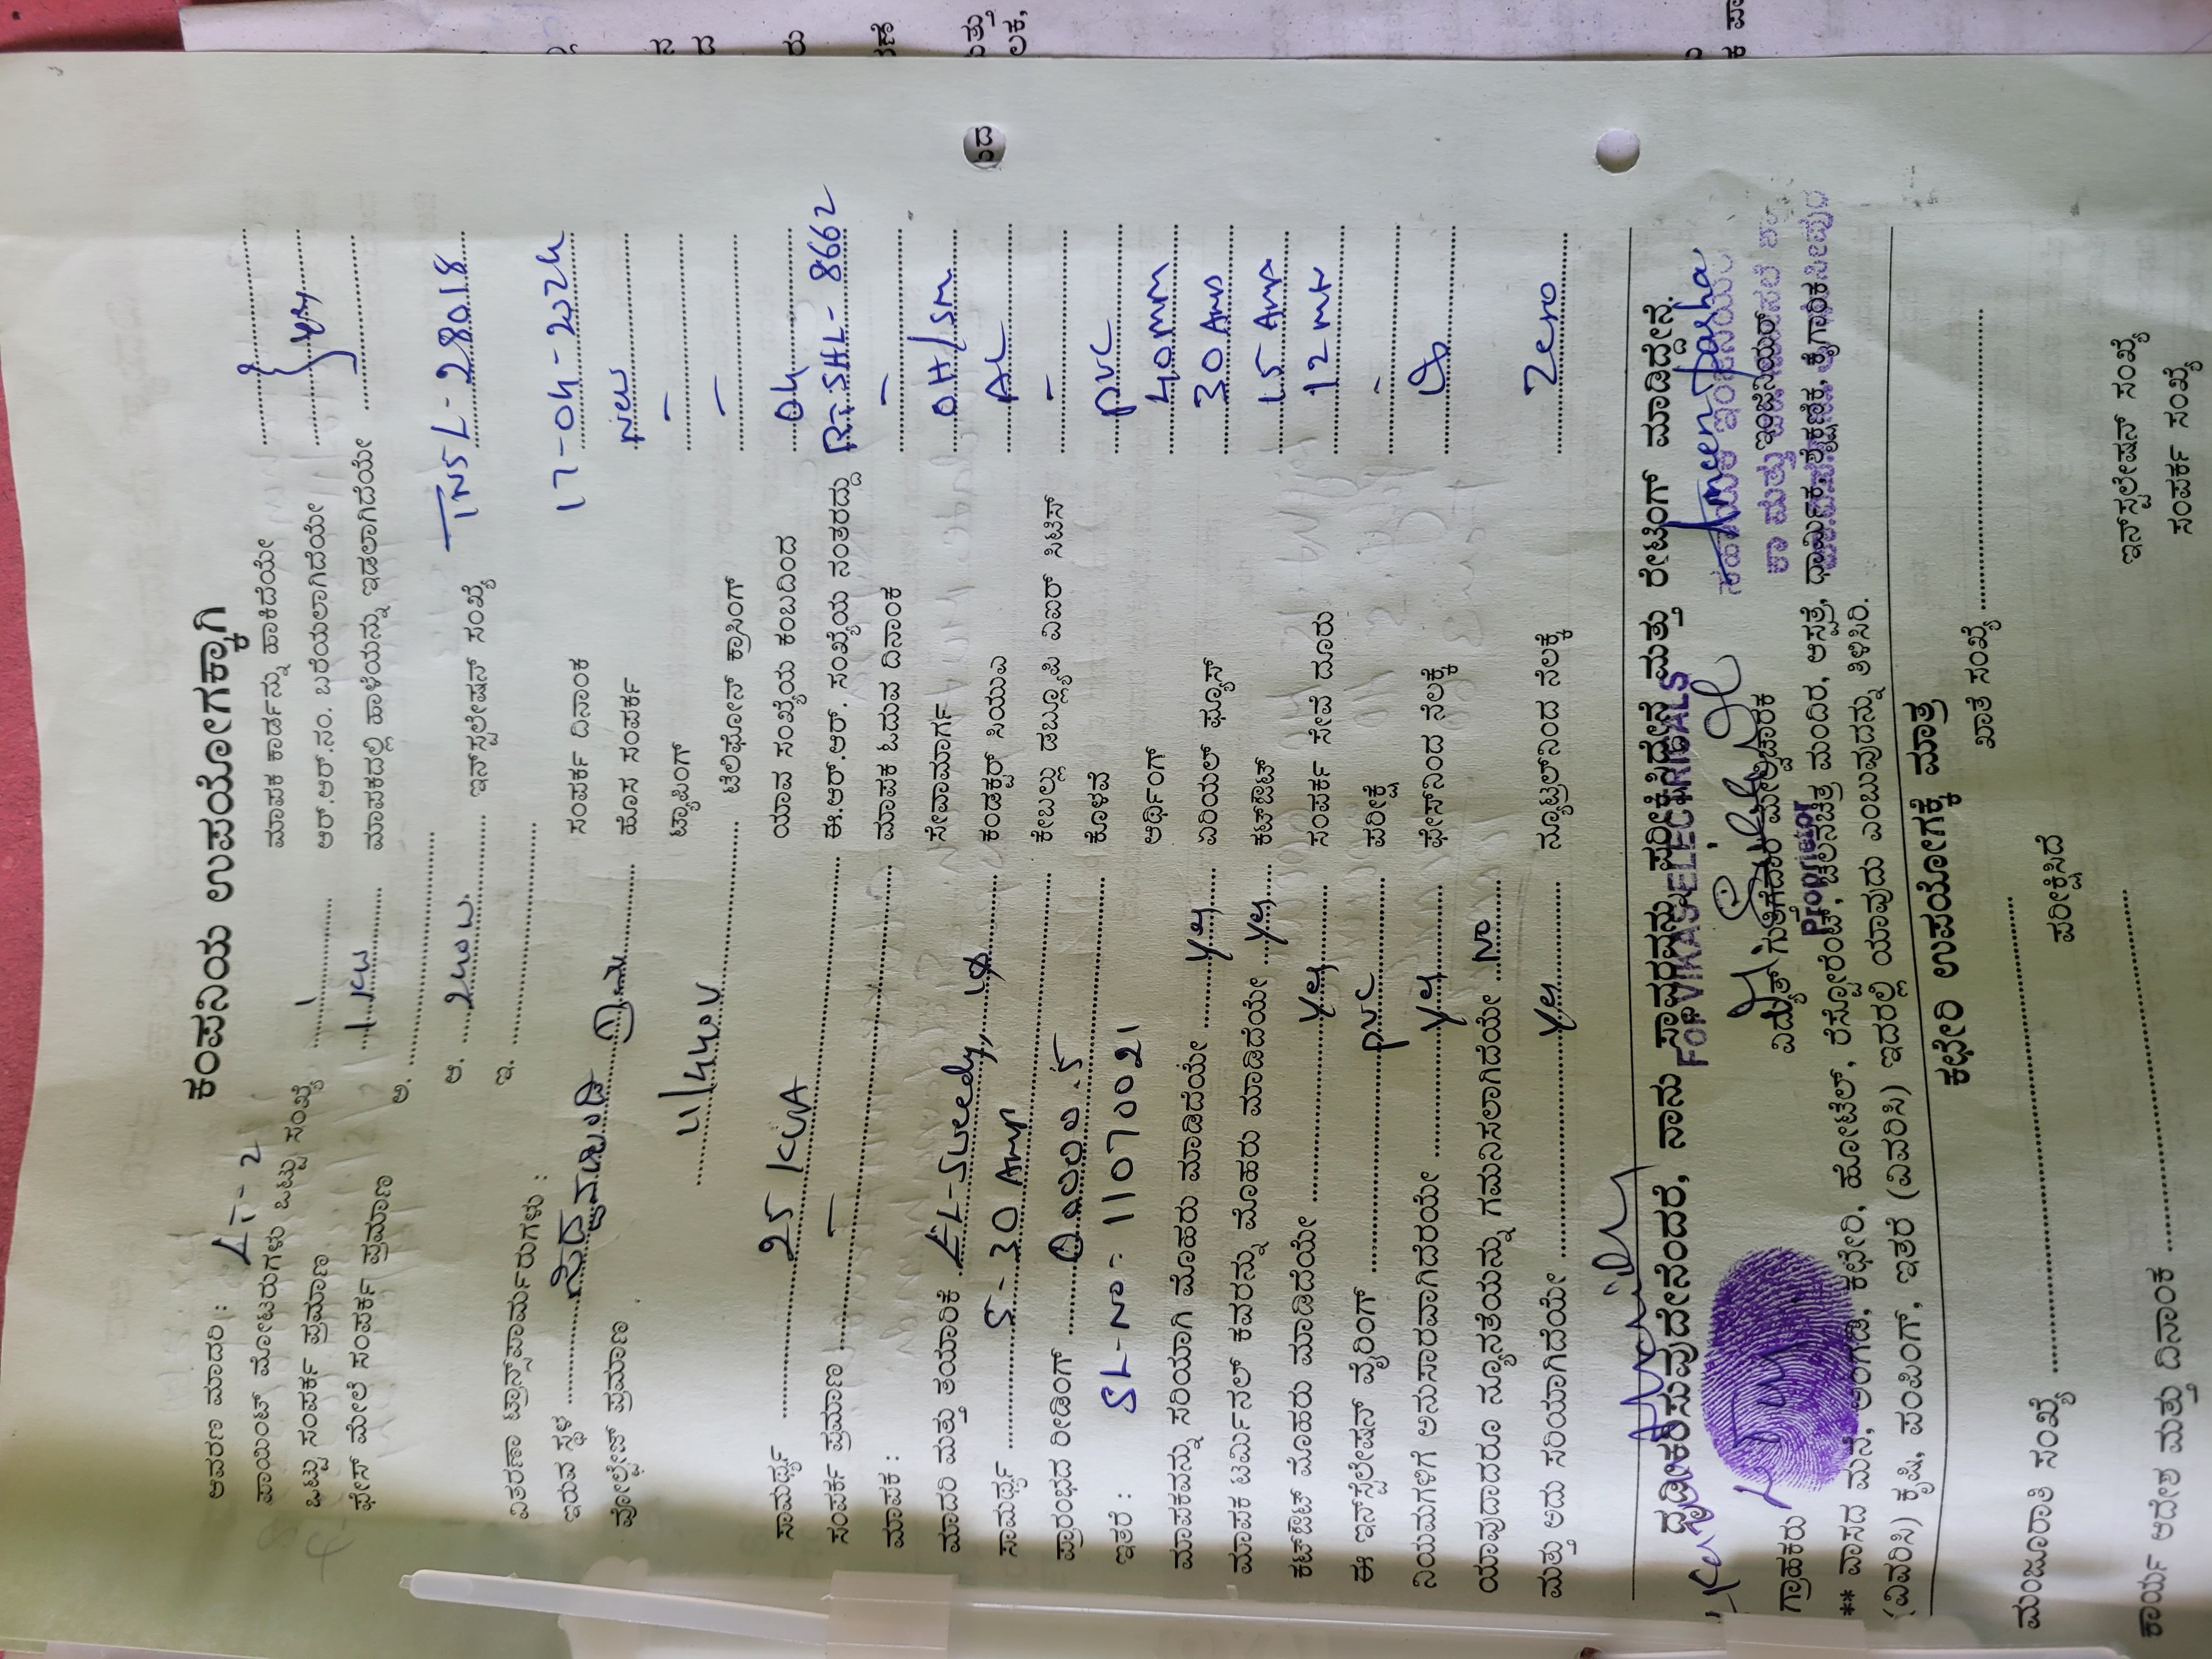 ಕಂಪನಿಯ ಉಪಯೋಗಕ್ಕಾಗಿ
ಆವರಣ ಮಾದರಿ : LT-2 ಮಾಪಕ ಕಾರ್ಡನ್ನು ಹಾಕಿದೆಯೇ
ಪಾಯಿಂಟ್ ಮೋಟರುಗಳು ಒಟ್ಟು ಸಂಖ್ಯೆ 1 ಆರ್.ಆರ್.ನಂ. ಬರೆಯಲಾಗಿದೆಯೇ yes
ಒಟ್ಟು ಸಂಪರ್ಕ ಪ್ರಮಾಣ 1 KW ಮಾಪಕದಲ್ಲಿ ಹಾಳೆಯನ್ನು ಇಡಲಾಗಿದೆಯೇ
ಫೇಸ್ ಮೇಲೆ ಸಂಪರ್ಕ ಪ್ರಮಾಣ ಅ.
ಆ. 240W. ಇನ್‌ಸ್ಟಲೇಷನ್ ಸಂಖ್ಯೆ TNSL-28018
ಇ.
ವಿತರಣಾ ಟ್ರಾನ್ಸ್‌ಫಾರ್ಮರುಗಳು :
ಇರುವ ಸ್ಥಳ ಸಂಪರ್ಕ ದಿನಾಂಕ 17-04-2024
ವೋಲ್ಟೇಜ್ ಪ್ರಮಾಣ ಹೊಸ ಸಂಪರ್ಕ New
11/440V ಟ್ಯಾಪಿಂಗ್ -
ಟೆಲಿಫೋನ್ ಕ್ರಾಸಿಂಗ್ -
ಸಾಮರ್ಥ್ಯ 25 KVA ಯಾವ ಸಂಖ್ಯೆಯ ಕಂಬದಿಂದ 04
ಸಂಪರ್ಕ ಪ್ರಮಾಣ - ಈ.ಆರ್.ಆರ್. ಸಂಖ್ಯೆಯ ನಂತರದ್ದು SHL-8662
ಮಾಪಕ : ಮಾಪಕ ಓದುವ ದಿನಾಂಕ -
ಮಾದರಿ ಮತ್ತು ತಯಾರಿಕೆ ಸೇವಾಮಾರ್ಗ OH/SM
ಸಾಮರ್ಥ್ಯ 5-30 Amp 1Ø ಕಂಡಕ್ಟರ್ ಸಿಯುಎ AL
ಪ್ರಾರಂಭದ ರೀಡಿಂಗ್ 0000.5 ಕೇಬಲ್ಲು ಡಬ್ಲ್ಯೂಪಿ ವಿಐಆರ್ ಸಿಟಿಸ್ -
ಇತರೆ : SL-No- 11070021 ಕೊಳವೆ PVC
ಅರ್ಥಿಂಗ್ 40MM
ಮಾಪಕವನ್ನು ಸರಿಯಾಗಿ ಮೊಹರು ಮಾಡಿದೆಯೇ yes ಏರಿಯಲ್ ಫ್ಯೂಸ್ 30 Amp
ಮಾಪಕ ಟರ್ಮಿನಲ್ ಕವರನ್ನು ಮೊಹರು ಮಾಡಿದೆಯೇ yes ಕಟ್‌ಔಟ್ 15 Amp
ಕಟ್‌ಔಟ್ ಮೊಹರು ಮಾಡಿದೆಯೇ yes ಸಂಪರ್ಕ ಸೇವೆ ದೂರು 12 mtr
ಈ ಇನ್‌ಸ್ಟಲೇಷನ್ ವೈರಿಂಗ್ PVC ಪರೀಕ್ಷೆ -
ನಿಯಮಗಳಿಗೆ ಅನುಸಾರವಾಗಿದೆರೆಯೇ yes ಫೇಸ್‌ನಿಂದ ನೆಲಕ್ಕೆ
ಯಾವುದಾದರೂ ನ್ಯೂನತೆಯನ್ನು ಗಮನಿಸಲಾಗಿದೆಯೇ No
ಮತ್ತು ಅದು ಸರಿಯಾಗಿದೆಯೇ yes ನ್ಯೂಟ್ರಲ್‌ನಿಂದ ನೆಲಕ್ಕೆ Zero
ದೃಢೀಕರಿಸುವುದೇನೆಂದರೆ, ನಾನು ಸ್ಥಾವರವನ್ನು ಪರೀಕ್ಷಿಸಿದ್ದೇನೆ ಮತ್ತು ರೇಟಿಂಗ್ ಮಾಡಿದ್ದೇನೆ.
For VIKAS ELECTRICALS
Ameen pasha
ಗ್ರಾಹಕರು ವಿದ್ಯುತ್ ಗುತ್ತಿಗೆದಾರ ಮೇಲ್ವಿಚಾರಕ ಇಂಜಿನಿಯರ್
Proprietor
** ವಾಸದ ಮನೆ, ಅಂಗಡಿ, ಕಛೇರಿ, ಹೋಟೆಲ್, ರೆಸ್ಟೋರೆಂಟ್, ಚಲನಚಿತ್ರ ಮಂದಿರ, ಆಸ್ಪತ್ರೆ, ಧಾರ್ಮಿಕ, ಶೈಕ್ಷಣಿಕ, ಕೈಗಾರಿಕೆ
(ವಿವರಿಸಿ) ಕೃಷಿ, ಪಂಪಿಂಗ್, ಇತರೆ (ವಿವರಿಸಿ) ಇದರಲ್ಲಿ ಯಾವುದು ಎಂಬುವುದನ್ನು ತಿಳಿಸಿರಿ.
ಕಛೇರಿ ಉಪಯೋಗಕ್ಕೆ ಮಾತ್ರ
ಖಾತೆ ಸಂಖ್ಯೆ
ಮಂಜೂರಾತಿ ಸಂಖ್ಯೆ
ಪರೀಕ್ಷಿಸಿದೆ
ಇನ್‌ಸ್ಟಲೇಷನ್ ಸಂಖ್ಯೆ
ಕಾರ್ಯ ಆದೇಶ ಮತ್ತು ದಿನಾಂಕ ಸಂಪರ್ಕ ಸಂಖ್ಯೆ